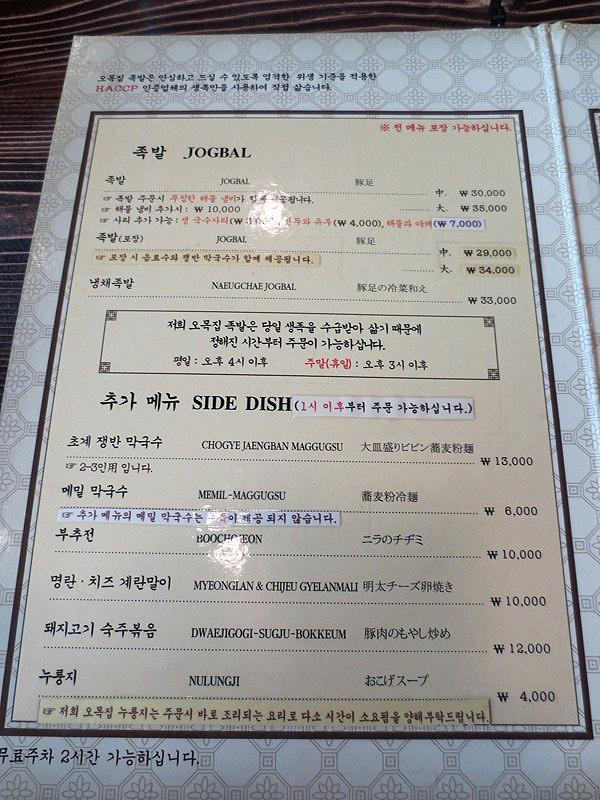 오목집 족발은 안심하고 드실 수 있도록 엄격한 위생 기준을 적용한
HACCP 인증업체의 생족만을 사용하여 직접 삶습니다.
※ 전 메뉴 포장 가능하십니다.
족발 JOGBAL
족발 JOGBAL 豚足 中. ₩ 30,000
☞ 족발 주문시 푸짐한 해물 냄비가 함께 제공됩니다.
☞ 해물 냄비 추가시 : ₩ 10,000 大. ₩ 35,000
☞ 사리 추가 가능 : 생 국수사리(₩ 유부(₩ 4,000), 해물과 야채(₩ 7,000)
족발(포장) JOGBAL 豚足 中. ₩ 29,000
☞ 포장 시 음료수와 쟁반 막국수가 함께 제공됩니다.
大. ₩ 34,000
냉채족발 NAEUGCHAE JOGBAL 豚足の冷菜和え ₩ 33,000
저희 오목집 족발은 당일 생족을 수급받아 삶기 때문에
정해진 시간부터 주문이 가능하십니다.
평일 : 오후 4시 이후 주말(휴일) : 오후 3시 이후
추가 메뉴 SIDE DISH (1시 이후부터 주문 가능하십니다.)
초계 쟁반 막국수 CHOGYE JAENGBAN MAGGUGSU 大皿盛りビビン蕎麦粉麺 ₩ 13,000
☞ 2~3인용 입니다.
메밀 막국수 MEMIL-MAGGUGSU 蕎麦粉冷麺 ₩ 6,000
☞ 추가 메뉴의 메밀 막국수는 제공 되지 않습니다.
부추전 ニラのチヂミ ₩ 10,000
명란 · 치즈 계란말이 MYEONGLAN & CHIJEU GYELANMALI 明太チーズ卵焼き ₩ 10,000
돼지고기 숙주볶음 DWAEJIGOGI-SUGJU-BOKKEUM 豚肉のもやし炒め ₩ 12,000
누룽지 NULUNGJI おこげスープ ₩ 4,000
☞ 저희 오목집 누룽지는 주문시 바로 조리되는 요리로 다소 시간이 소요됨을 양해부탁드립니다.
무료주차 2시간 가능하십니다.